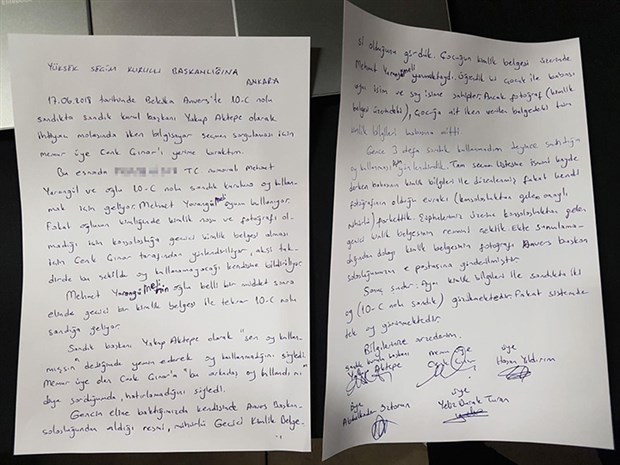 YÜKSEK SEÇİM KURULU BAŞKANLIĞINA
ANKARA
17.06.2018 tarihinde Belçika Anvers'te 10-C nolu
sandıkta sandık kurul başkanı Yakup Aktepe olarak
ihtiyaç molasında iken bilgisayar seçmen sorgulaması için
memur üye Cenk Çınar'ı yerime bıraktım.
Bu esnada TC numaralı Mehmet
Yarangül ve oğlu 10-C nolu sandık kuruluna oy kullan-
mak için geliyor. Mehmet oyunu kullanıyor.
Fakat oğlunun kimliğinde kimlik nosu ve fotoğrafı ol-
madığı için konsolosluğa geçici kimlik belgesi alması
için Cenk Çınar tarafından yönlendiriliyor, aksi tak-
dirde bu şekilde oy kullanamayacağı kendisine bildiriliyor.
Mehmet oğlu belli bir müddet sonra
elinde geçici bir kimlik belgesi ile tekrar 10-C nolu
sandığa geliyor.
Sandık başkanı Yakup Aktepe olarak "sen oy kullan-
mışsın" dediğinde yemin ederek oy kullanmadığını söyledi.
Memur üye olan Cenk Çınar'a "bu arkadaş oy kullandı mı"
diye sorduğunda, hatırlamadığını söyledi.
Gencin eline baktığımızda kendisinde Anvers Başkon-
solosluğundan aldığı resmi, mühürlü Geçici Kimlik Belge-
si olduğunu gördük. Çocuğun kimlik belgesi üzerinde
Mehmet yazmaktaydı. Öğrendik ki çocuk ile babası
aynı isim ve soy isime sahipler. Ancak fotoğraf (kimlik
belgesi üzerindeki), çocuğa ait iken verilen belgedeki tüm
kimlik bilgileri babasına aitti.
Genç 3 defa sandık kullanmadım deyince sandığa
oy kullanması yönlendirildi. Tam seçmen listesine ismini kaydе-
derken babasının kimlik bilgileri ile düzenlenmiş fakat kendi
fotoğrafının olduğu evrakı (konsolosluktan gelen onaylı,
mühürlü) farkettik. Şüphelenmiş üzerine konsolosluktan gelen
geçici kimlik belgesinin resmini çektik. Ekte sunulama-
dığından dolayı kimlik belgesinin fotoğrafı Anvers başkon-
solosluğumuzun e postasına gönderilmiştir.
Sonuç Aynı kimlik bilgileri ile sandıkta iki
oy (10-C nolu sandık) görülmektedir. Fakat sistemde
tek oy görünmektedir.
Bilgilerinize arzederim.
Sandık kurulu başkanı
Yakup Aktepe
memur üye
Cenk Çınar
üye
Hasan Yıldırım
üye
Abdulkadir
üye
Turan